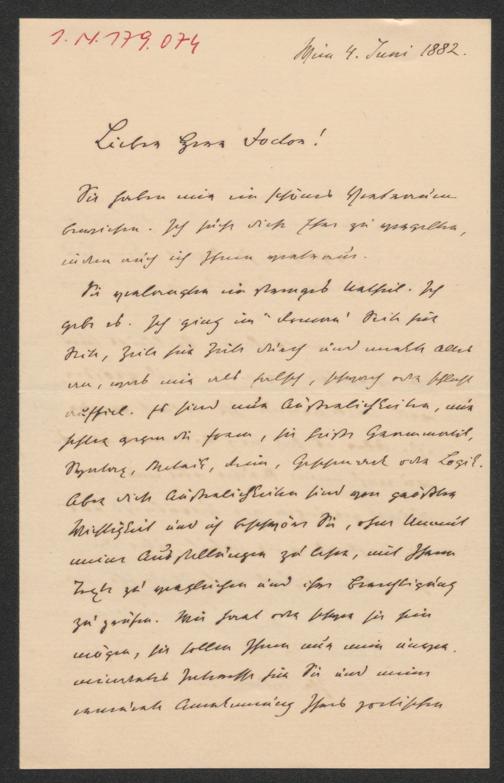 I. N. 179.074
Wien 4. Juni 1882.
Lieber Herr Doctor!
Sie haben mir ein schönes Vertrauen
bewiesen. Ich suche diese Ehre zu vergelten,
indem auch ich Ihnen vertraue.
Sie verlangten ein strenges Urtheil. Ich
gebe es. Ich ging im "" Seite für
Seite, Zeile für Zeile durch und merkte alles
an, was mir als falsch, schwach oder schlecht
auffiel. Es sind nur Äußerlichkeiten, nur
Fehler gegen die Form, sie heiße Grammatik,
Syntax, Metrik, Reim, Geschmack oder Logik.
Aber diese Äußerlichkeiten sind von größter
Wichtigkeit und ich beschwöre Sie, ohne Unmut
meine Ausstellungen zu lesen, mit Ihrem
Texte zu vergleichen und ihre Berechtigung
zu prüfen. Wie sie sein
mögen, sie sollen Ihnen nur mein
Interesse für Sie und meine
Anerkennung Ihres poetischen